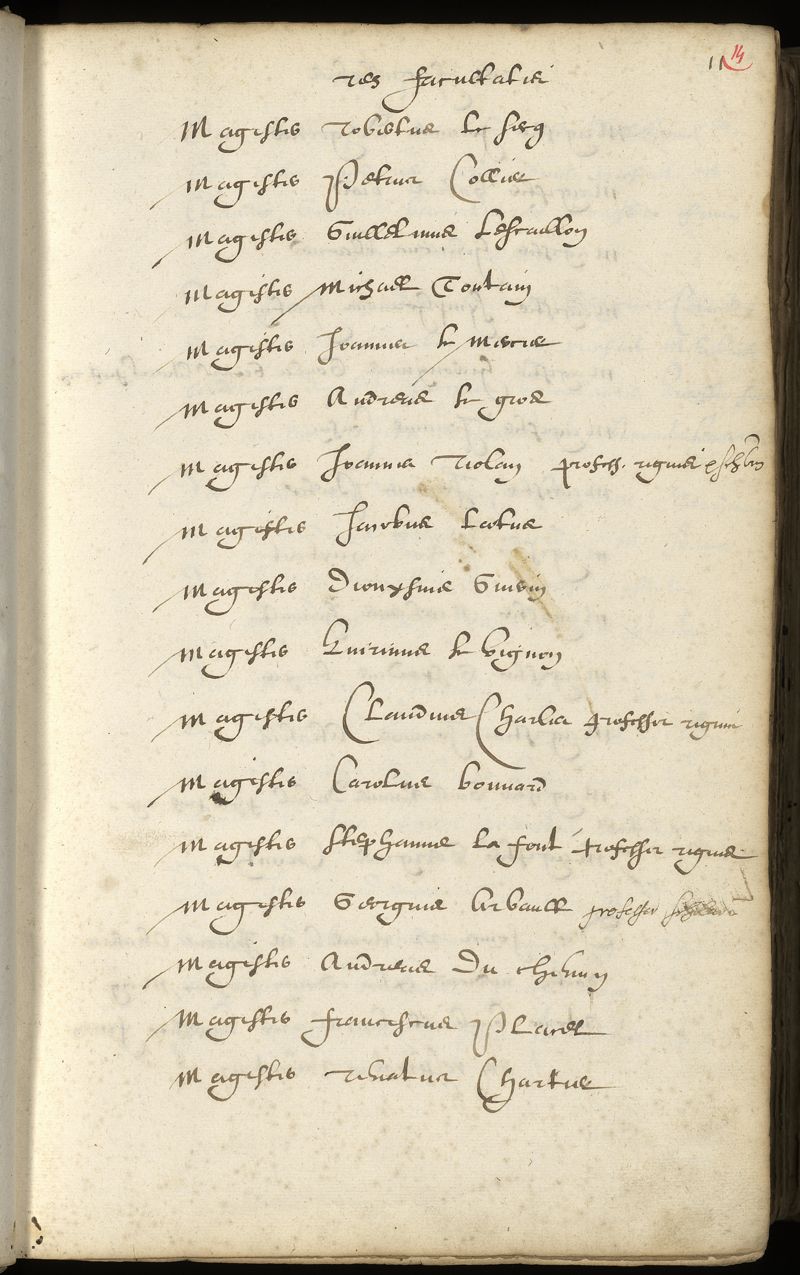 11 14
res facultatis
Magister Robertus le secq
Magister Petrus Collier
Magister Guillelmus Lescaillon
Magister Michael Toutain
Magister Joannes le Mercier
Magister Andreas le gros
Magister Joannes Riolan profess. regius
Magister Jacobus Laetus
Magister Dionysius Guerin
Magister Quirinus le Vignon
Magister Claudius Charles professor regius
Magister Carolus bouvard
Magister Stephanus La font professor regius
Magister Georgius Arbault professor
Magister Andreas Du chemin
Magister franciscus Placet
Magister renatus Chartier